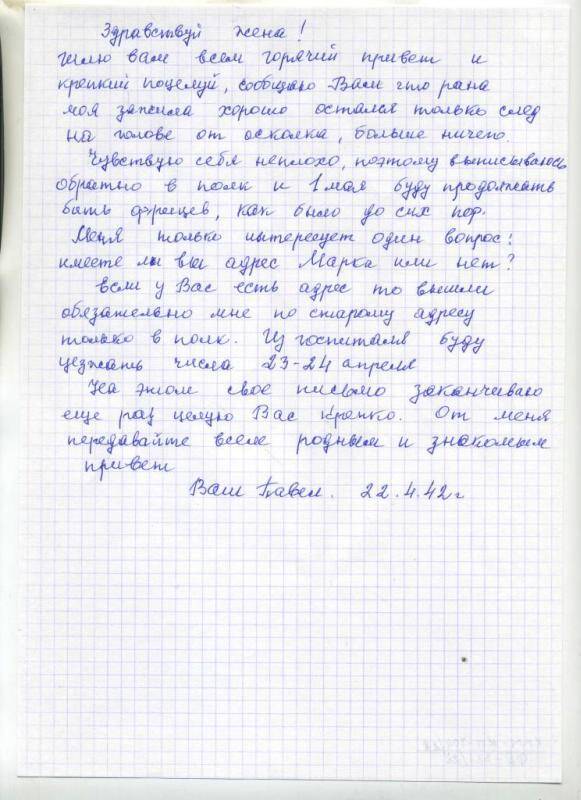 Здравствуй жена!
шлю вам всем горячий привет и
крепкий поцелуй, сообщаю Вам что рана
моя зажила хорошо остался только след
на голове от осколка, больше ничего.
Чувствую себя неплохо, поэтому выписываюсь
обратно в полк и 1 мая буду продолжать
бить фрицев, как было до сих пор.
Меня только интересует один вопрос:
имеете ли вы адрес Марка или нет?
если у Вас есть адрес то вышли
обязательно мне по старому адресу
только в полк. Из госпиталя буду
уезжать числа 23-24 апреля
На этом свое письмо заканчиваю
еще раз целую Вас крепко. От меня
передавайте всем родным и знакомым
привет
Ваш Павел. 22.4.42 г